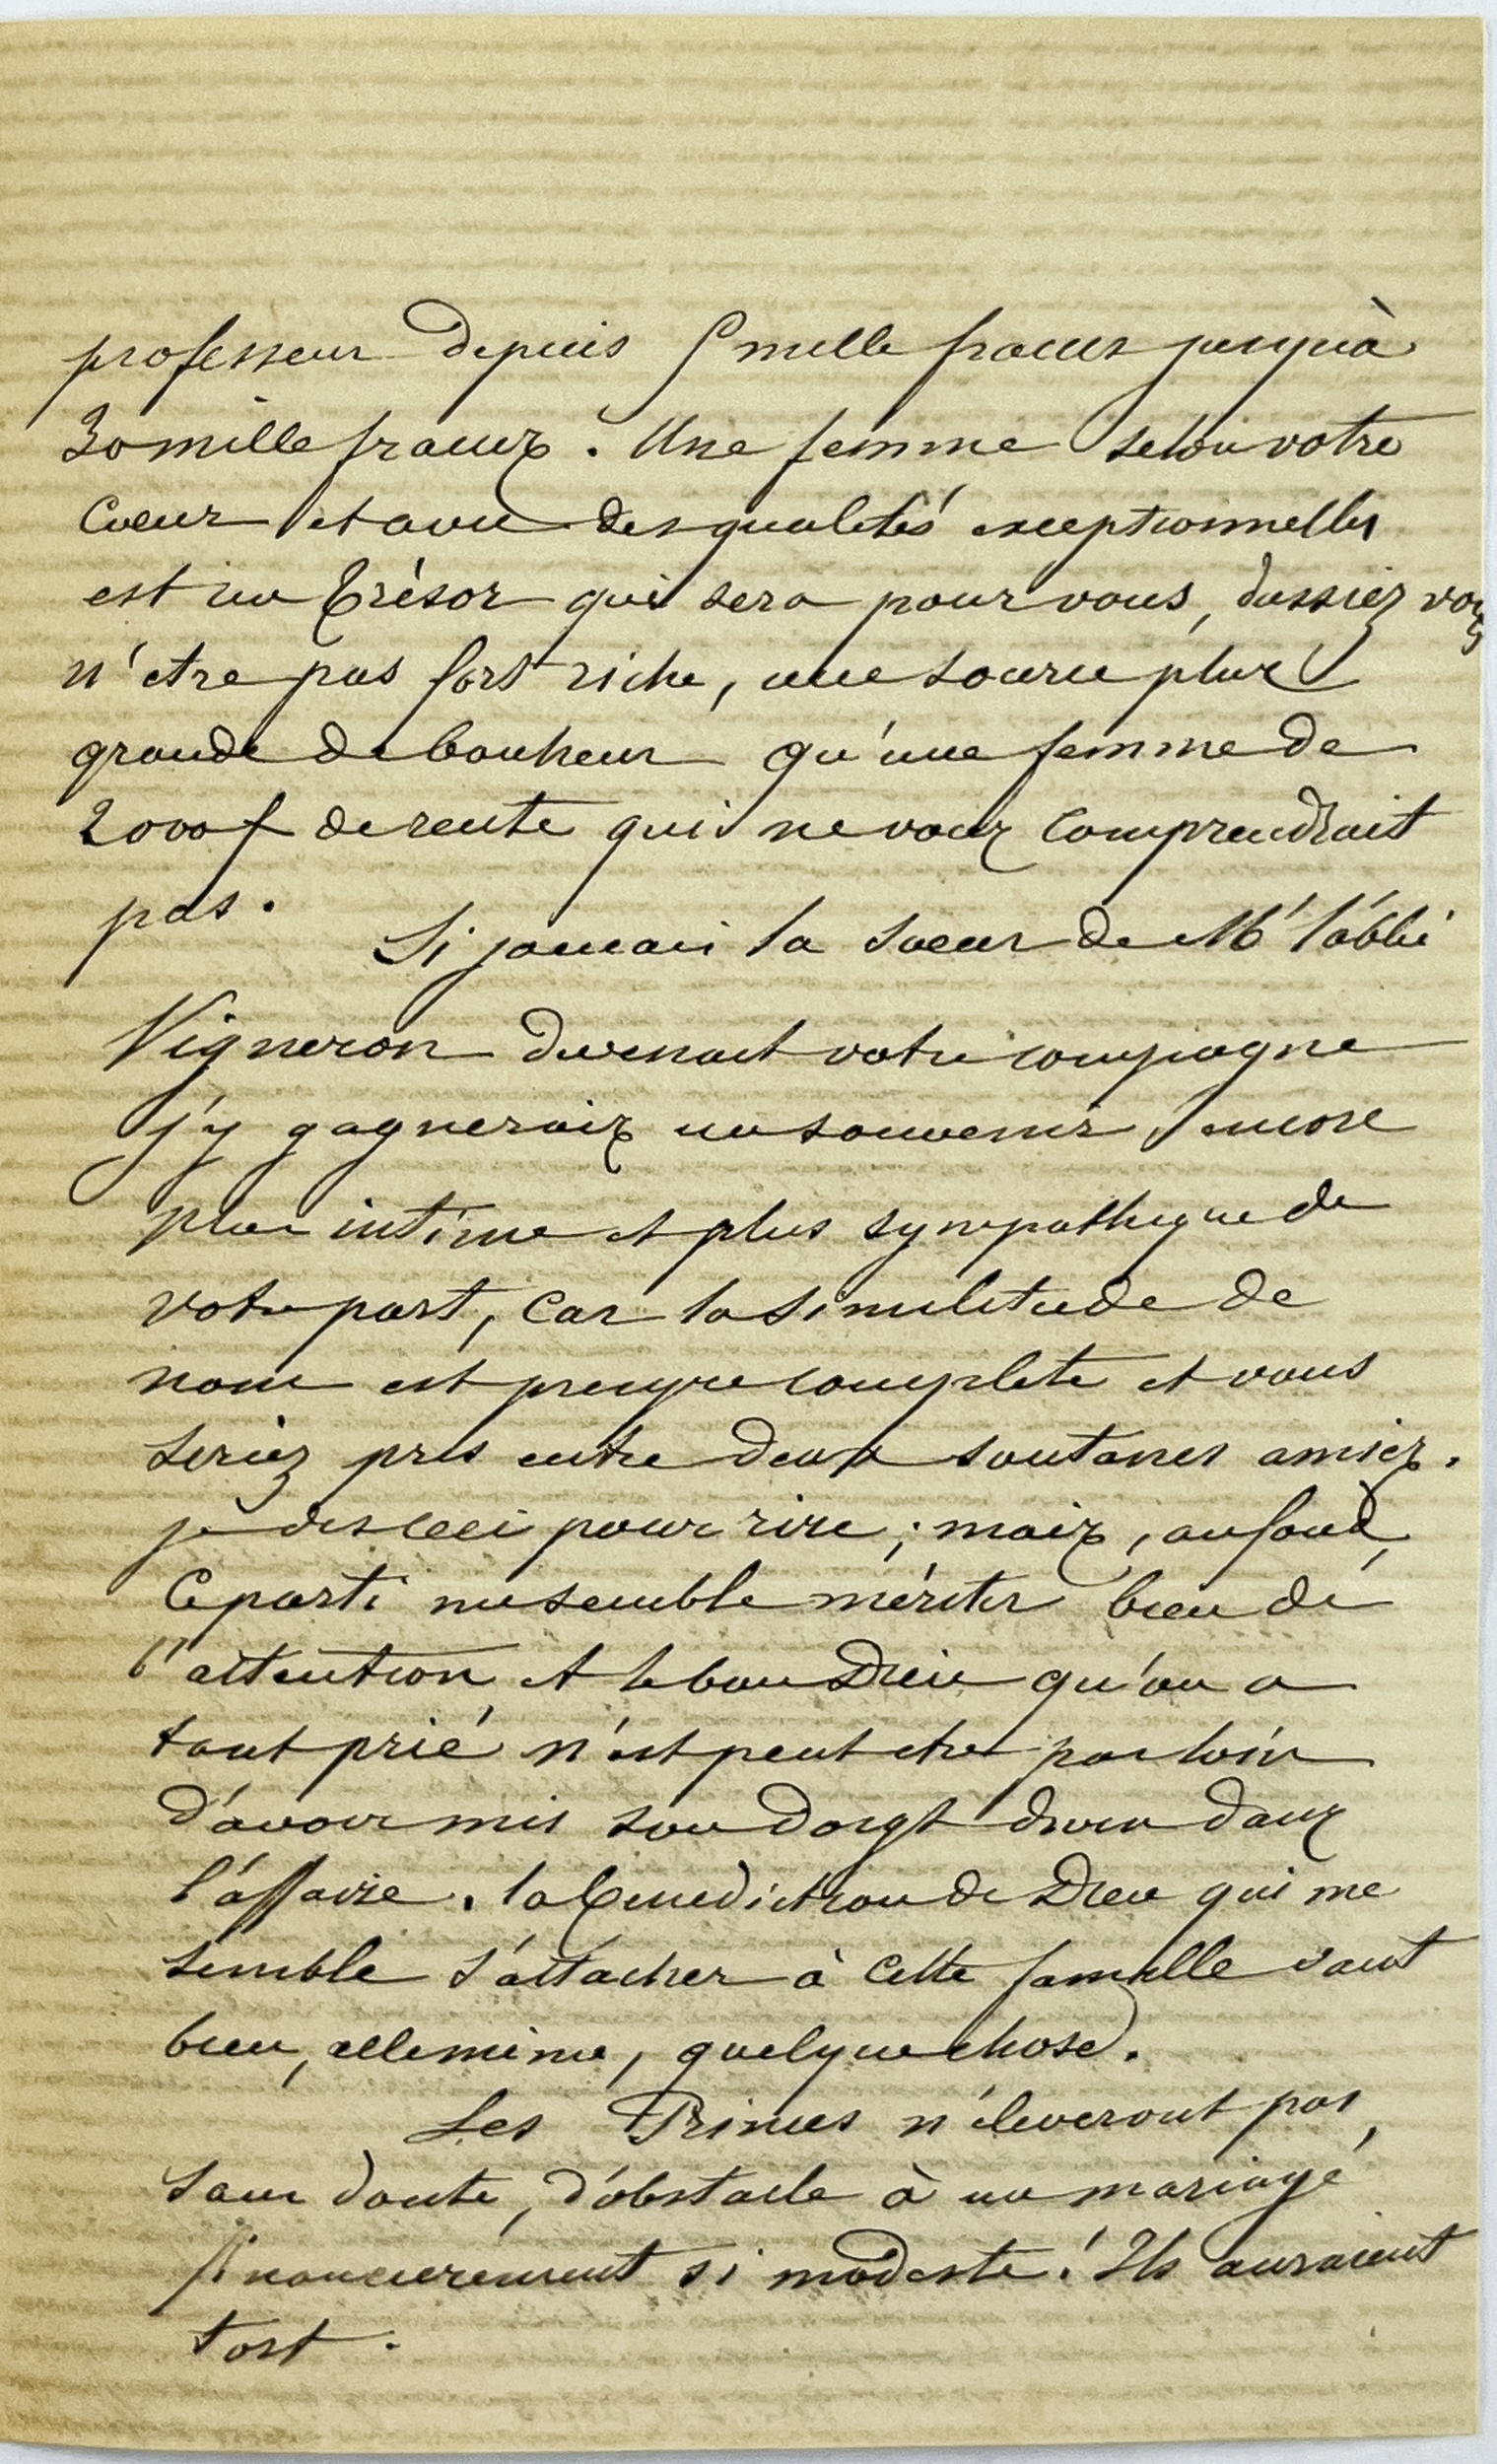 professeur depuis 5 mille francs jusqu'à
30 mille francs. Une femme selon votre
Coeur et avec des qualités exceptionnelles
est un trésor qui sera pour vous, dussiez vous
n'etre pas fort riche, une source plus
grande de bonheur qu'une femme de
2000 f de rente qui ne vous Comprendrait
pas.
Si jamais la soeur de Mr l'abbé
Vigneron devenait votre compagne
j'y gagnerais un souvenir encore
plus intime et plus sympathique de
votre part, Car la similitude de
nom est presque complete et vous
seriez pris entre deux soutanes amies.
je dis ceci pour rire ; mais, au fond,
Ce parti me semble mériter bien de
l'attention et le bon Dieu qu'on a
tant prié n'est peut etre pas loin
d'avoir mis son doigt divin dans
l'affaire. la benediction de Dieu qui me
semble s'attacher à Cette famille vaut
bien, elle même, quelque chose.
Les Princes n'éleveront pas,
sans doute, d'obstacle à un mariage
financierement si modeste ! Ils auraient
tort.